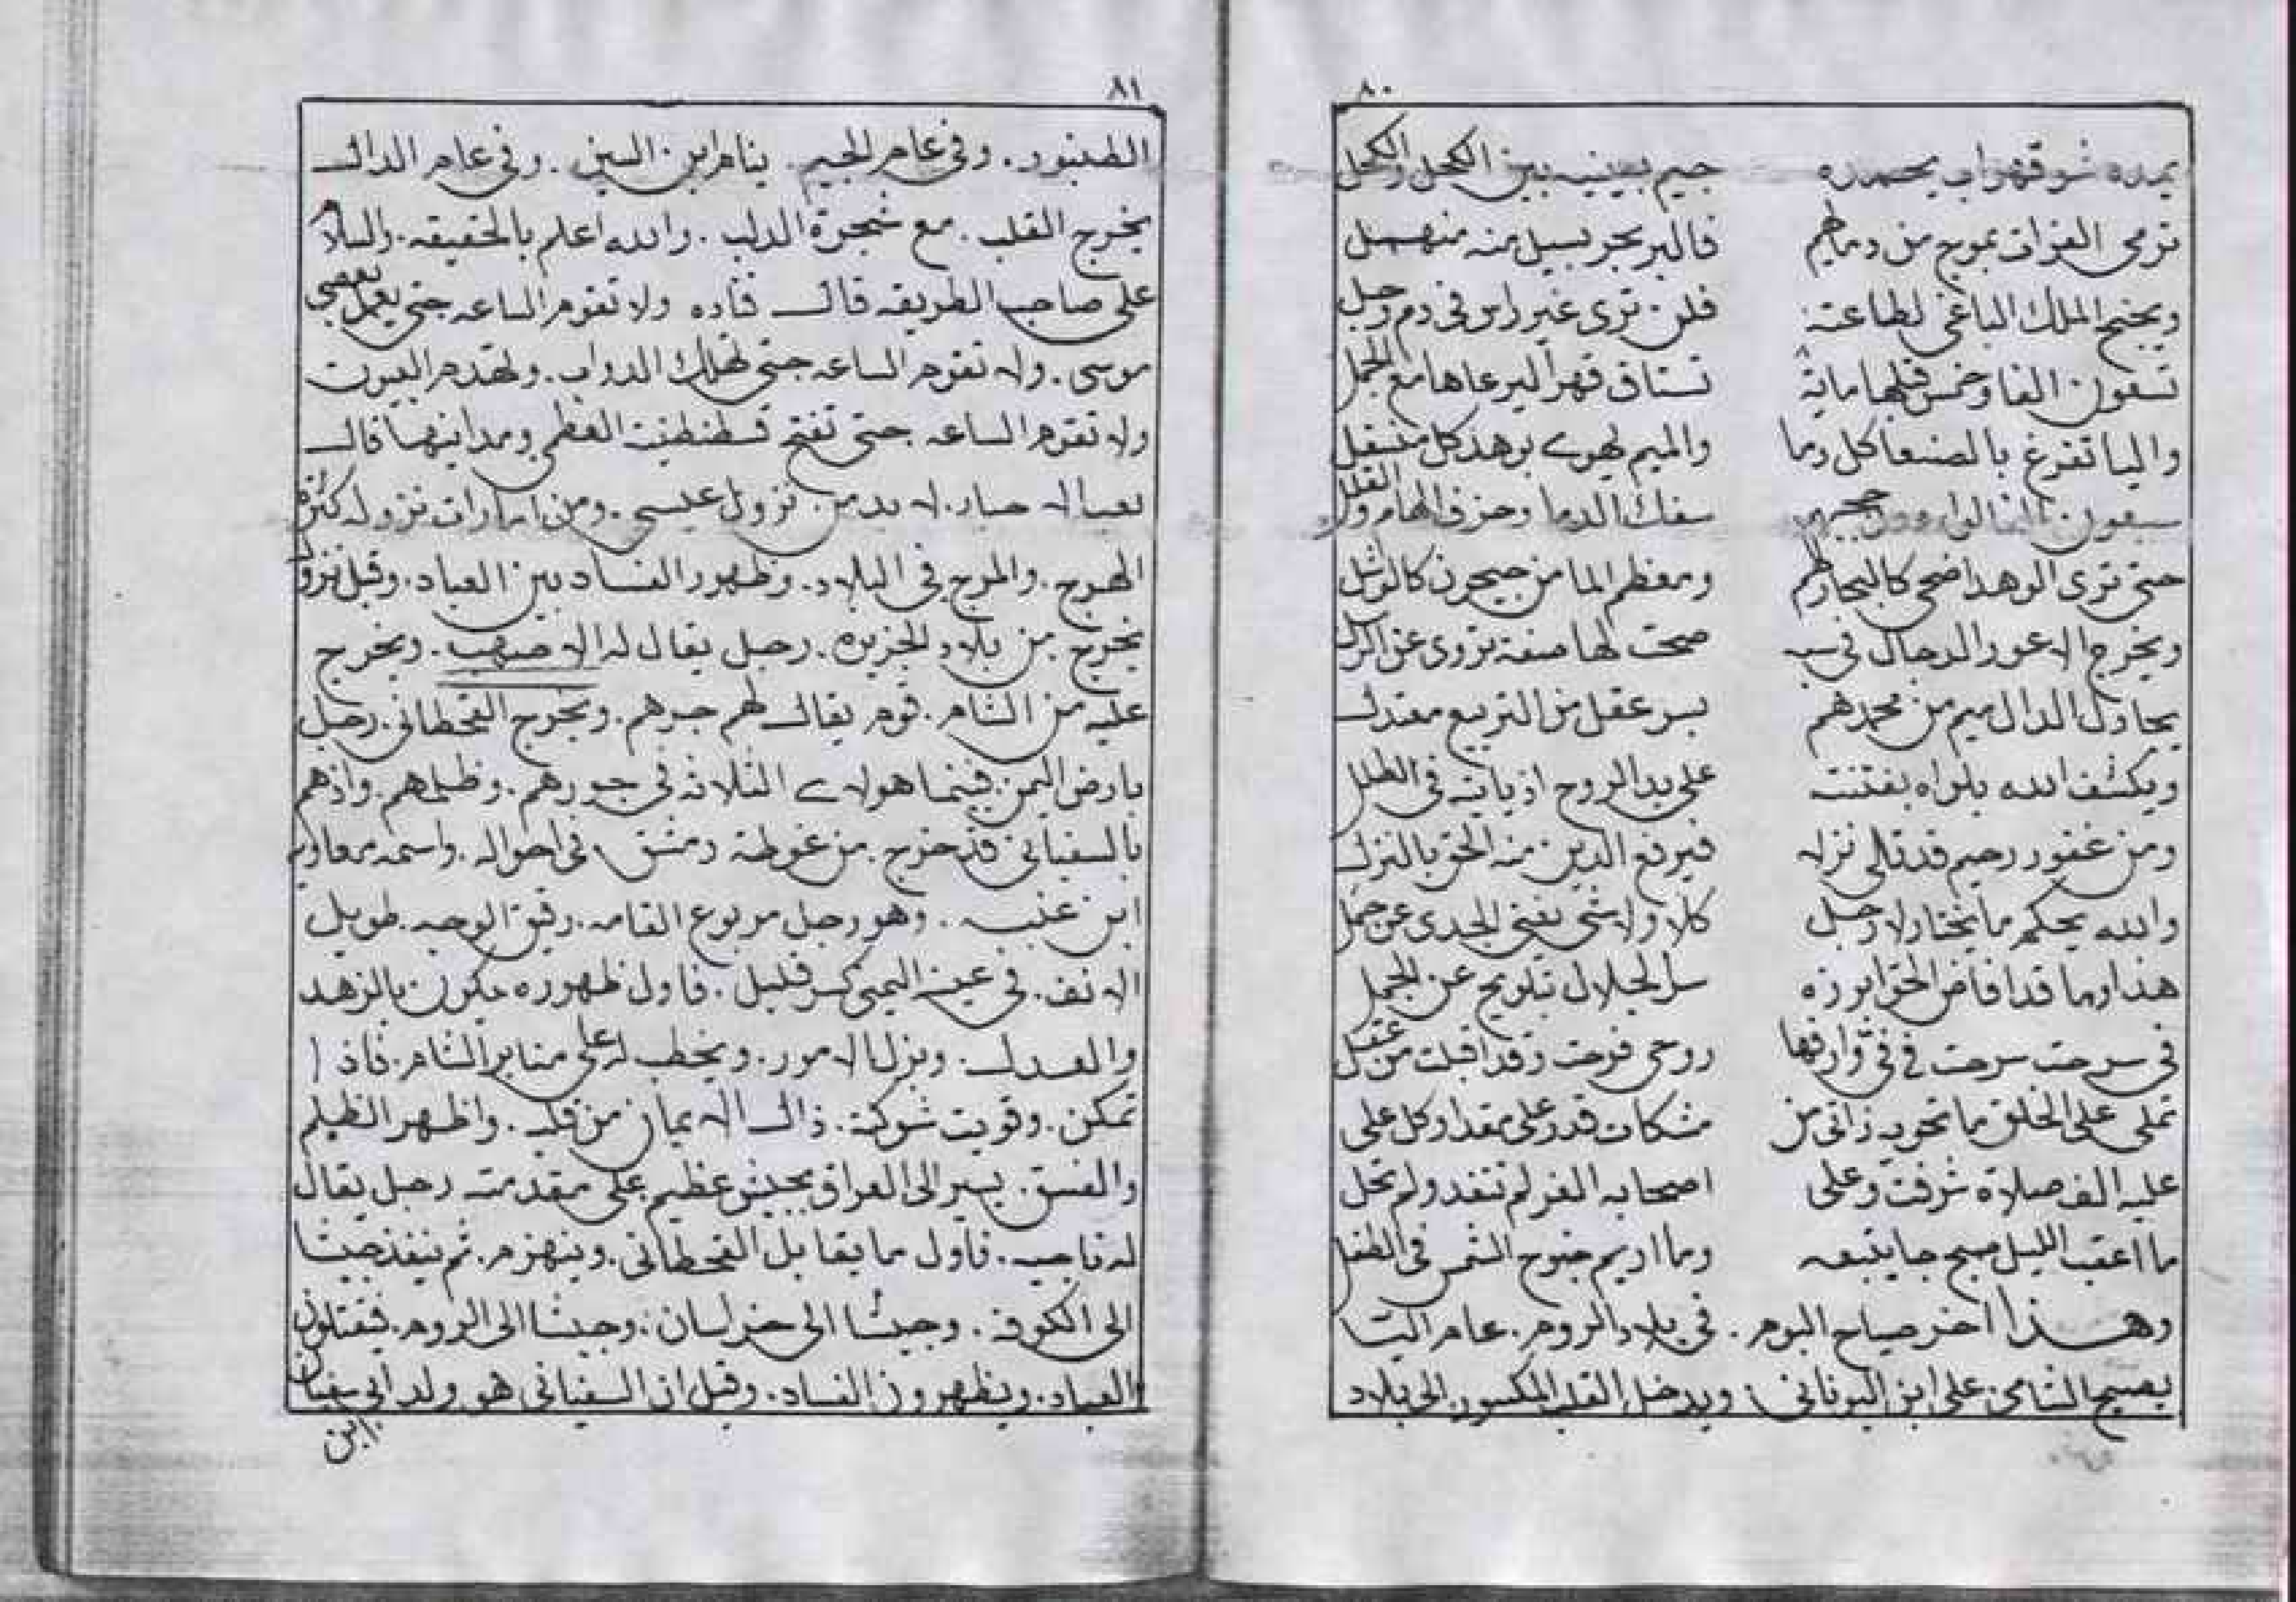 ٨٠
يمده شوقهراب يحمده جيم بعينيه بين الكحل والكحل
ترمى الفرات بموج من دماهم فالبر بحر يسيل منه منهمل
ويجنح الملك الباغى لطاعته فلن ترى غير راس فى دم وجل
تسعون الفا وخمس قبلها ماية تستاق قهرا لبرعاها مع الجمل
واليا تفرغ بالصنعا كل دما والميم لهوى بوهد كل منسفل
سبعون الفا سفك الدما وحز فى الهام والقلل
حتى ترى الوهد اضحى كالبحار لهم ومعظم الما من جيحون كالوشل
ويخرج الاعور الدجال فى سبه صحت لها صفة تروى عن الرسل
يحاول الدال ميم من محمدهم بسر عقل من التربيع معتدل
ويكشف الله بلواه بفتنته على يد الروح اذ ياته فى الظلل
ومن غفور رحيم قد تالى نزله فيرفع الدين منه الحق بالنزل
والله يحكم ما يختار لا رجل كلا ولا شى يغنى الجدى عن حمل
هذا وما قد افاض الحق ابرزه سر الجلال تلويح عن الجمل
فى سرحت سرحت فى فى وارفها روحى فرحت وقد اقبلت من عقل
تملى على الخلق ما تحويه ذاتى من مشكات قدر على مقدار كل على
عليه الف صلاة شرفت وعلى اصحابه الغر لم تنفد ولم تحل
ما اعقب الليل صبح جا يتبعه وما اديم جنوح الشمس فى الطفل
وهذا اخر صياح البوم . فى بلاد الروم . عام التا
يصيح الشامى على ابن اليونانى ويدخل القلب المكسور الى بلاد
٨١
الطنبور . وفى عام الجيم . ينام ابن السين . وفى عام الدال
يخرج القلب . مع شجرة الدلب . والله اعلم بالحقيقه . والسلام
على صاحب الطريقه قال قتاده ولا تقوم الساعه حتى يعمل بعصى
موسى . ولا تقوم الساعه حتى تهلك الدواب . وتهدم البيوت
ولا تقوم الساعه حتى تفتح قسطنطينة العظمى ومداينها قال
لا بد من نزول عيسى . ومن امارات نزوله كثرة
الهرج . والمرج فى البلاد . وظهور الفساد بين العباد . وقبل نزوله
يخرج من بلاد الجزيره . رجل يقال له الاصهب . ويخرج
عليه من الشام . قوم يقال لهم جرهم . ويخرج القحطانى . رجل
بارض اليمن . فبينما هولاء الثلاثه فى جورهم . وظلمهم . واذهم
بالسفيانى قد خرج . من غوطة دمشق . فى احواله . واسمه معاويه
ابن عنبسه . وهو رجل مربوع القامه . رقيق الوجه . طويل
الانف . فى عينه اليمنى كسر قليل . فاول ظهوره يكون بالزهد
والعدل . ونزل الامور . ويخطب له على منابر الشام . فاذا
تمكن . وقويت شوكته . ذال الايمان من قلبه . واظهر الظلم
والفسق . يسير الى العراق بجيش عظيم على مقدمته رجل يقال
له ناجيه . فاول ما يقابل القحطانى . وينهزم . ثم ينفذ جيشا
الى الكوفه . وجيشا الى خراسان . وجيشا الى الروم . فيقتلون
العباد . ويظهرون الفساد . وقيل ان السفيانى هو ولد ابى سفيان
ابن